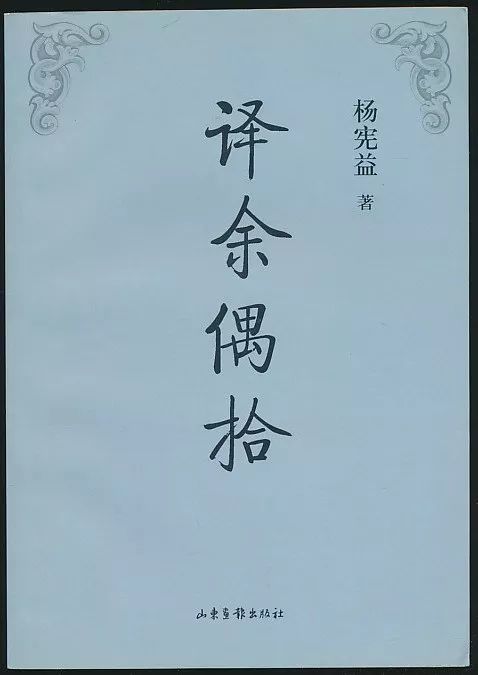 杨宪益 著
译余偶拾
山东画报出版社